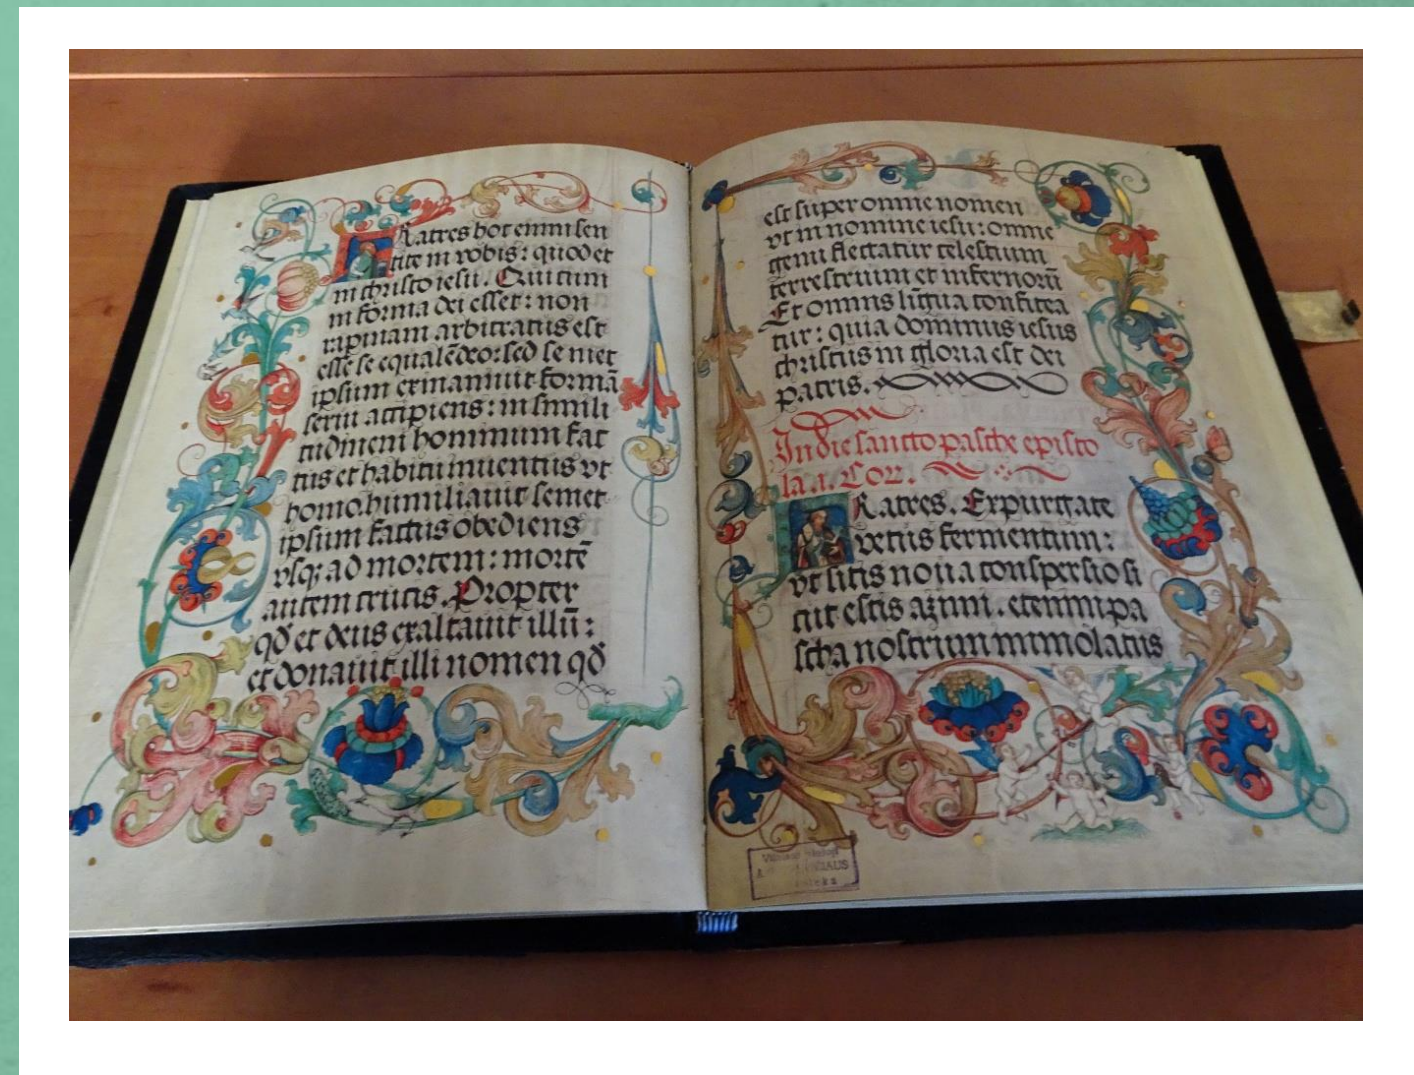 Fratres hoc enim sen
tite in vobis: quod et
in christo iesu. Qui cum
in forma dei esset: non
rapinam arbitratus est
esse se equalē deo: sed se met
ipsum exinanivit formā
servi accipiens: in simili
tudinem hominum fac
tus et habitu inventus vt
homo. humiliavit semet
ipsum factus obediens
vsq; ad mortem: mortē
autem crucis. Propter
qđ et deus exaltavit illū:
et donavit illi nomen qđ
est super omne nomen
vt in nomine iesu: omne
genu flectatur celestium
terrestrium et infernorū
Et omnis lingua confitea
tur: quia dominus iesus
christus in gloria est dei
patris.
In die sancto pasche episto
la .1. Cor.
Fratres. Expurgate
vetus fermentum:
vt sitis nova conspersio si
cut estis azimi. etenim pa
scha nostrum immolatus